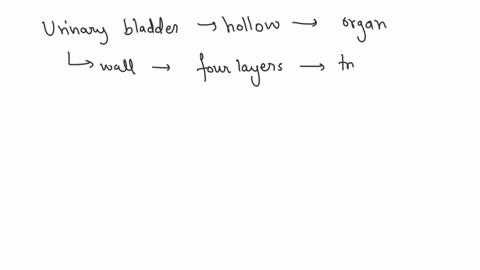 Urinary bladder → hollow → organ
↳ wall → four layers → tr